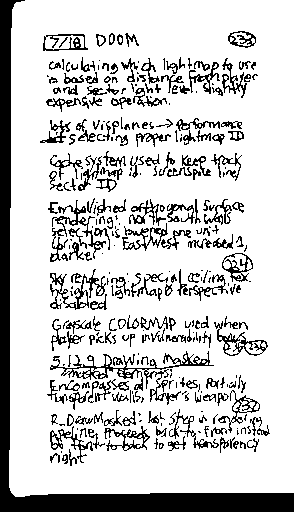 7/18 DOOM 232
calculating which lightmap to use
is based on distance from player
and sector light level. Slightly
expensive operation.
lots of visplanes → performance
selecting proper lightmap ID
Cache system used to keep track
of lightmap id. screenspace line/
sector ID
Embellished orthogonal surface
rendering: north-south walls
selection is lowered one unit
(brighter). East/West increased 1,
darker
234
Sky rendering: special ceiling tex.
height 0, lightmap 0 perspective
disabled
Grayscale COLORMAP used when
player picks up invulnerability bonus
236
5.12.9 Drawing Masked
"masked elements"
Encompasses all sprites, Partially
transparent walls, Player's weapon
237
R_DrawMasked: last step in rendering
pipeline, proceeds back-to-front instead
of front-to-back to get transparency
right